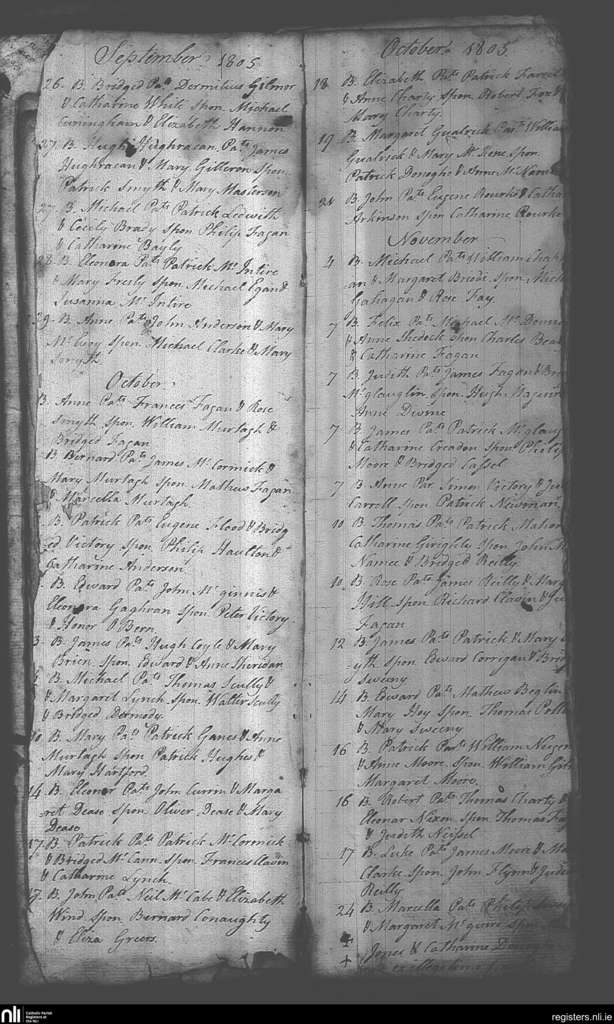 September 1805
26. B. Bridged Pats Dermitius Gilmor
& Catharine White Spon. Michael
Cuningham & Elizabeth Hannon
27. B. Hugh Pats James
Hughracan & Mary Gilleron Spon.
Patrick Smyth & Mary Masterson
27. B. Michael Pats Patrick Ledwith
& Cecily Brady Spon Philip Fagan
& Catharine Bayly
28. B. Eleonora Pats Patrick Mc Intire
& Mary Fresly Spon Michael Egan &
Susanna Mc Intire
29. B. Anne Pats John Anderson & Mary
Spon. Michael Clarke & Mary
Smyth
October
B. Anne Pats Frances Fagan & Rose
Smyth Spon. William Murtagh &
Bridged Fagan
B Bernard Pats James Mc Cormick &
Mary Murtagh Spon Mathew Fagan
& Marcella Murtagh
B. Patrick Pats Eugene Flood & Bridg
ed Victory Spon. Philip &
Catharine Anderson
B. Edward Pats John Mc ginnis &
Eleonora Gaghran Spon. Peter Victory
& Honor O Bern
3. B. James Pats Hugh Coyle & Mary
Brien Spon. Edward & Anne Sheridan
B. Michael Pats Thomas Scully &
& Margaret Lynch Spon Walter Scully
& Bridged Dermody
10 B. Mary Pats Patrick Ganes & Anne
Murtagh Spon Patrick Hughes &
Mary Hartford
14. B. Elenor Pats John Currin & Marga
ret Dease Spon Oliver Dease & Mary
Dease
17. B. Patrick Pats Patrick Mc Cormick
& Bridged Mc Cann Spon Frances Clavin
& Catharine Lynch
17. B. John Pats Neil Mc Cabe & Elizabeth
Wind Spon Bernard Conaughty
& Eliza Greers
October 1805
18. B. Elizabeth Pats Patrick Farrel
& Anne Charty Spon Robert Fox &
Mary Charty
19 B. Margaret Pats William
& Mary Mc Kene Spon
Patrick Donoghe & Anne Mc
21 B. John Pats Eugene Rourke & Catha
Arkinson Spon Catharine Rourke
November
4 B. Michael Pats William
an & Margaret Briody Spon. Mich
Gahagan & Rose Fay
7 B. Felix Pats Michael Mc
& Anne Shedock Spon Charles
& Catharine Fagan
7 B. Judith Pats James Fagan &
Mc glauglin Spon Hugh Maguire
Anne Divine
7 B James Pats Patrick Mc glaug
& Catharine Creadon Spon. Philip
Moore & Bridged Cassel
7 B Anne Par Simon Victory &
Carroll Spon Patrick Newman
10 B Thomas Pats Patrick Mahon
Catharine Girighty Spon John M
Namee & Bridged Reilly
10 B Rose Pats James Reilly & Marg
Hill Spon Richard Clavin &
Fagan
12 B James Pats Patrick & Mary
yth Spon Edward Corrigan & Brid
Sweeny
14 B Edward Pats Mathew Boglin
Mary Hoy Spon Thomas
& Mary Sweeny
16 B. Patrick Pats William
& Anne Moore Spon. William
Margaret Moore
16 B Robert Pats Thomas Charty &
Elenor Nixon Spon Thomas
& Judith
17 B. Luke Pats James Moore &
Clarke Spon John Flynn &
Reilly
24 B. Marcella Pats Philip
& Margaret Mc guire Spon
Jones & Catharine
nli
Catholic Parish
Registers at
the NLI
registers.nli.ie